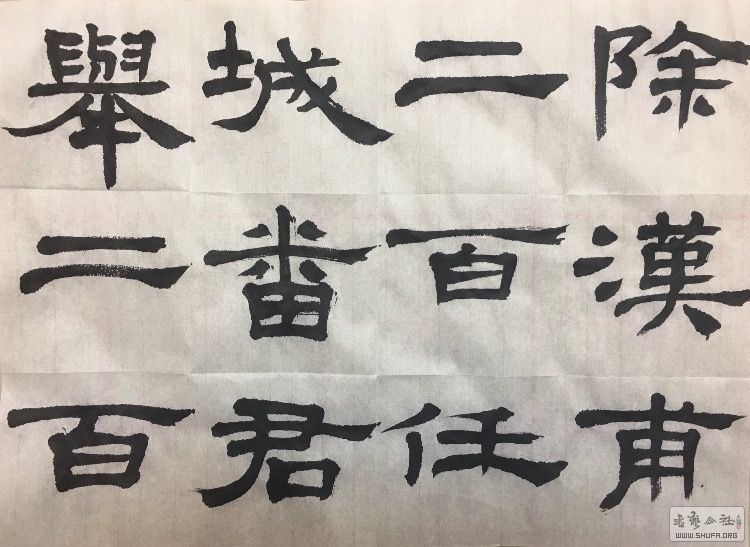 除漢甫
二百任
城番君
舉二百
书艺公社
WWW.SHUFA.ORG